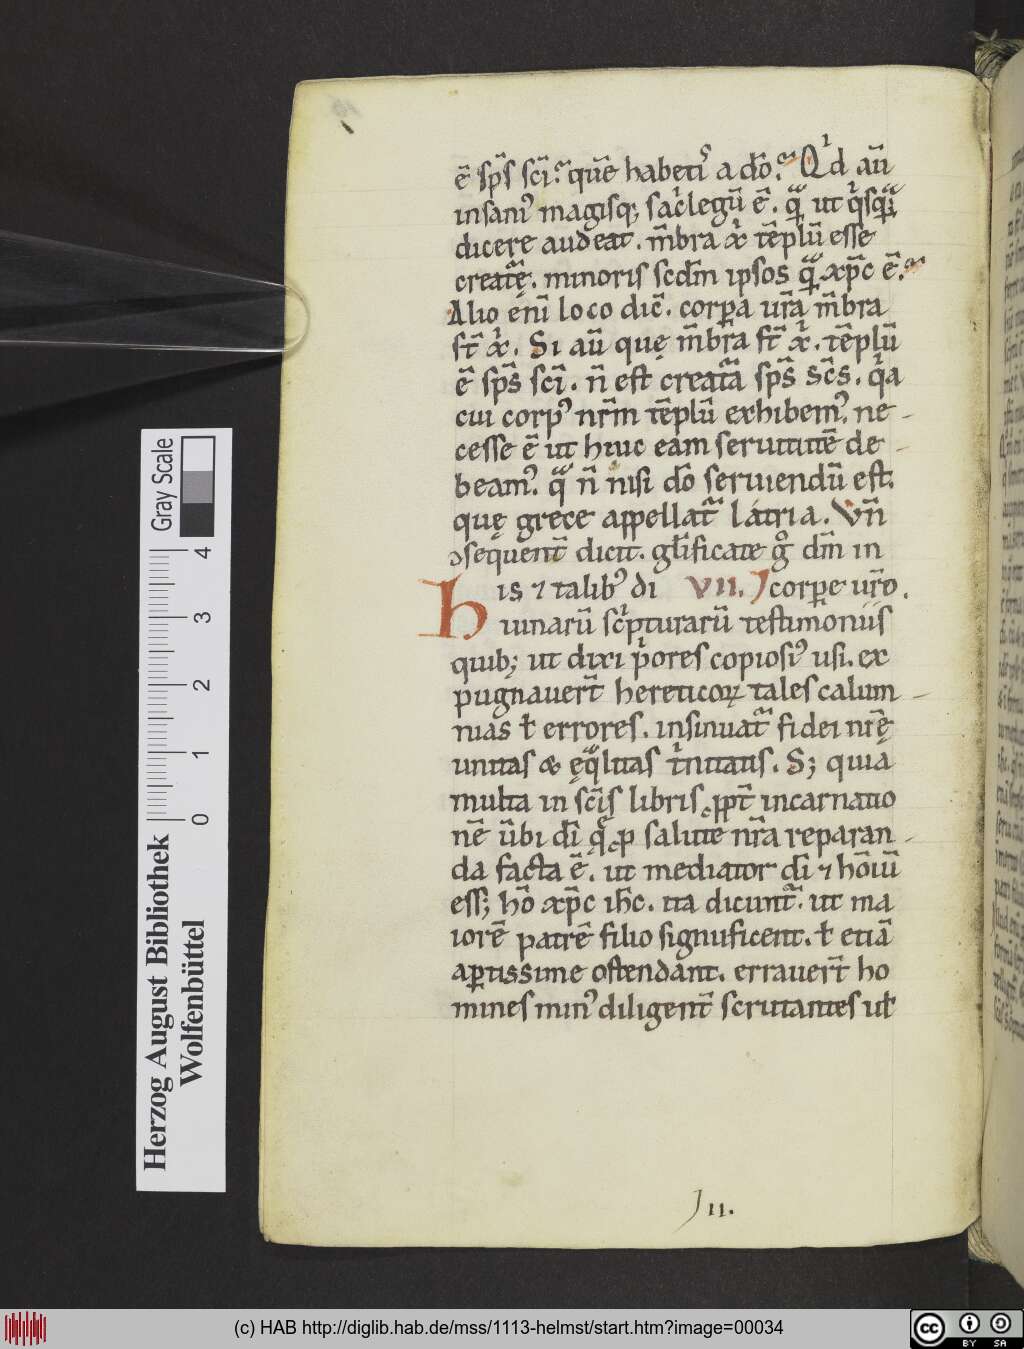 ē sp̄s sc̄i. quē habetis a dō. Qͥd aū
insani᷒ magisq; sacͥlegū ē. qᷓ ut qͥsqᷓ
dicere audeat. m̄bra xͥ tēplū esse
creatᷓę. minoris scdm̄ ipsos qᷓ xp̄c ē.
Alio eni loco dic̄. corpa ur̄a m̄bra
st̄ xͥ. Si aū quę m̄bra st̄ xͥ. tēplū
ē sp̄s sc̄i. n̄ est creatᷓa sp̄s sc̄s. qͥa
cui corp᷒ nr̄m tēplū exhibem᷒. ne
cesse ē ut huic eam seruitutē de
beam᷒. qᷓ n̄ nisi dō seruiendū est.
quę grece appellatᷓ latria. Vn̄
ɔsequent̄ dicit. gl̄ificate gͦ dm̄ in
his ⁊ talib᷒ di VII. Jcorpe ur̄o.
uinarū scͥpturarū testimoniis
quib; ut dixi pͥores copiosi᷒ usi. ex
pugnauer̄t hereticoꝝ tales calum
nias ł errores. insinuatᷓ fidei nr̄ę
unitas & ęqᷓlitas tͥnitatis. S; quia
multa in sc̄is libris ꝓpt̄ incarnatio
nē ūbi dī q̨ ꝓ salute nr̄a reparan
da facta ē. ut mediator dī ⁊ hōiū
ess; hō xp̄c ih̄c. ita dicuntᷓ. ut ma
iorē patrē filio significent. ł etiā
aptissime ostendant. errauer̄t ho
mines min᷒ diligent̄ scrutantes uł
III.
Gray Scale
4 3 2 1 0
Herzog August Bibliothek
Wolfenbüttel
(c) HAB http://diglib.hab.de/mss/1113-helmst/start.htm?image=00034
cc BY SA